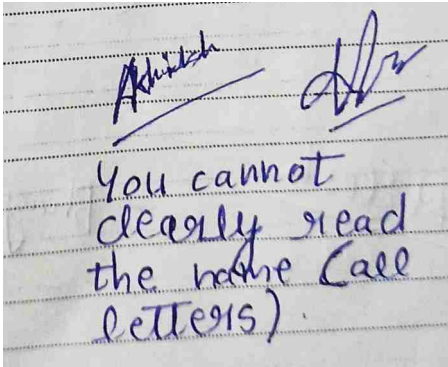 You cannot
clearly read
the name (all
letters)